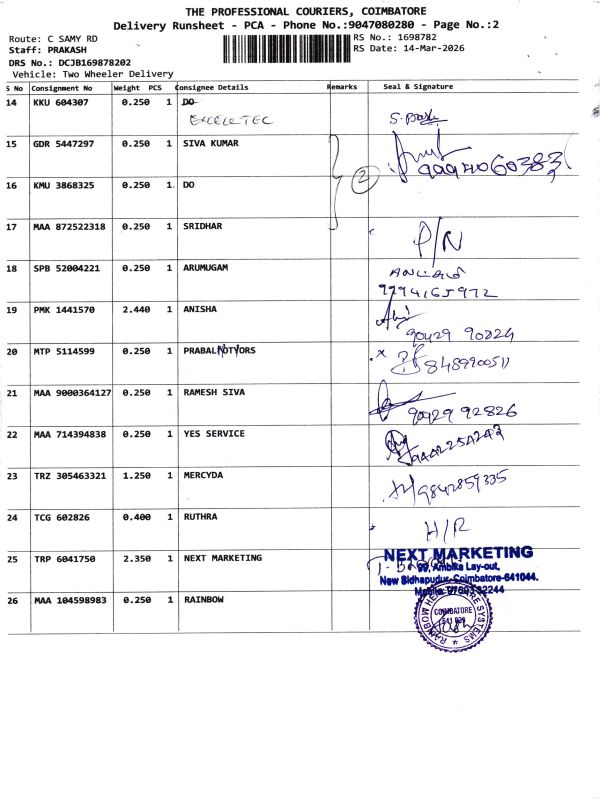 THE PROFESSIONAL COURIERS, COIMBATORE
Delivery Runsheet - PCA - Phone No.:9047080280 - Page No.:2
Route: C SAMY RD
RS No.: 1698782
Staff: PRAKASH
RS Date: 14-Mar-2026
DRS No.: DCJB169878202
Vehicle: Two Wheeler Delivery
S No Consignment No Weight PCS Consignee Details Remarks Seal & Signature
14 KKU 604307 0.250 1 DO
EXCELLTEC
15 GDR 5447297 0.250 1 SIVA KUMAR
9994060383
2
16 KMU 3868325 0.250 1 DO
17 MAA 872522318 0.250 1 SRIDHAR P/N
18 SPB 52004221 0.250 1 ARUMUGAM
9794165972
19 PMK 1441570 2.440 1 ANISHA
90429 90824
20 MTP 5114599 0.250 1 PRABALMOTYORS
8489900511
21 MAA 9000364127 0.250 1 RAMESH SIVA
90429 92826
22 MAA 714394838 0.250 1 YES SERVICE
9442254243
23 TRZ 305463321 1.250 1 MERCYDA
9842859335
24 TCG 602826 0.400 1 RUTHRA H/R
25 TRP 6041750 2.350 1 NEXT MARKETING
NEXT MARKETING
99, Ambika Lay-out,
New Sidhapudur, Coimbatore-641044.
26 MAA 104598983 0.250 1 RAINBOW
COIMBATORE